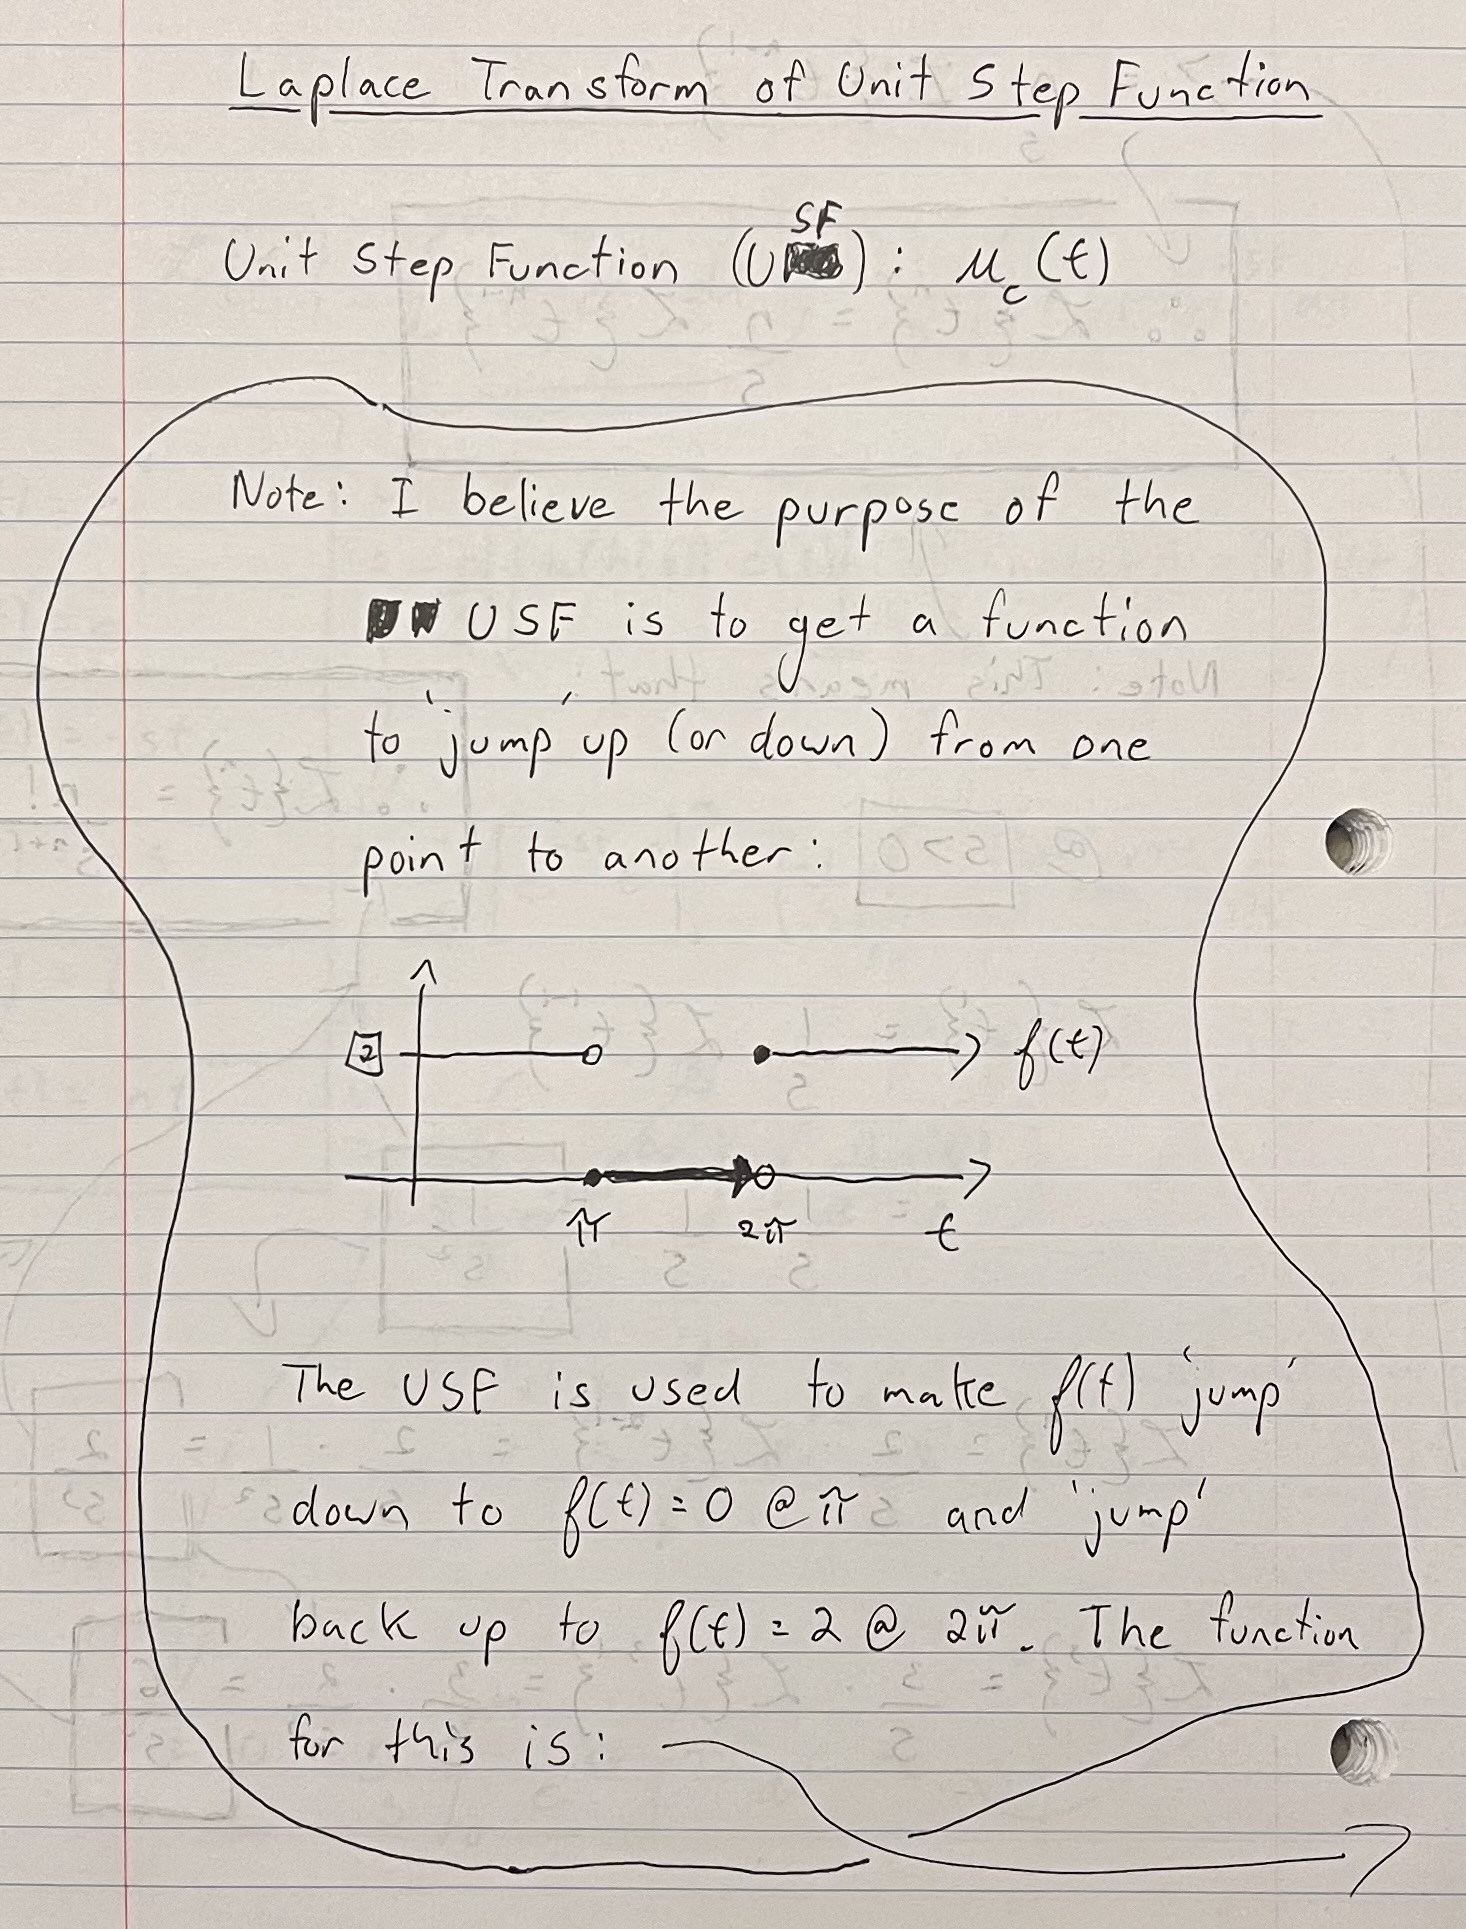 Laplace Transform of Unit Step Function
SF
Unit Step Function (U ): μc(t)
Note: I believe the purpose of the
USF is to get a function
to 'jump' up (or down) from one
point to another:
2 f(t)
π 2π t
The USF is used to make f(t) 'jump'
down to f(t) = 0 @ π and 'jump'
back up to f(t) = 2 @ 2π. The function
for this is: